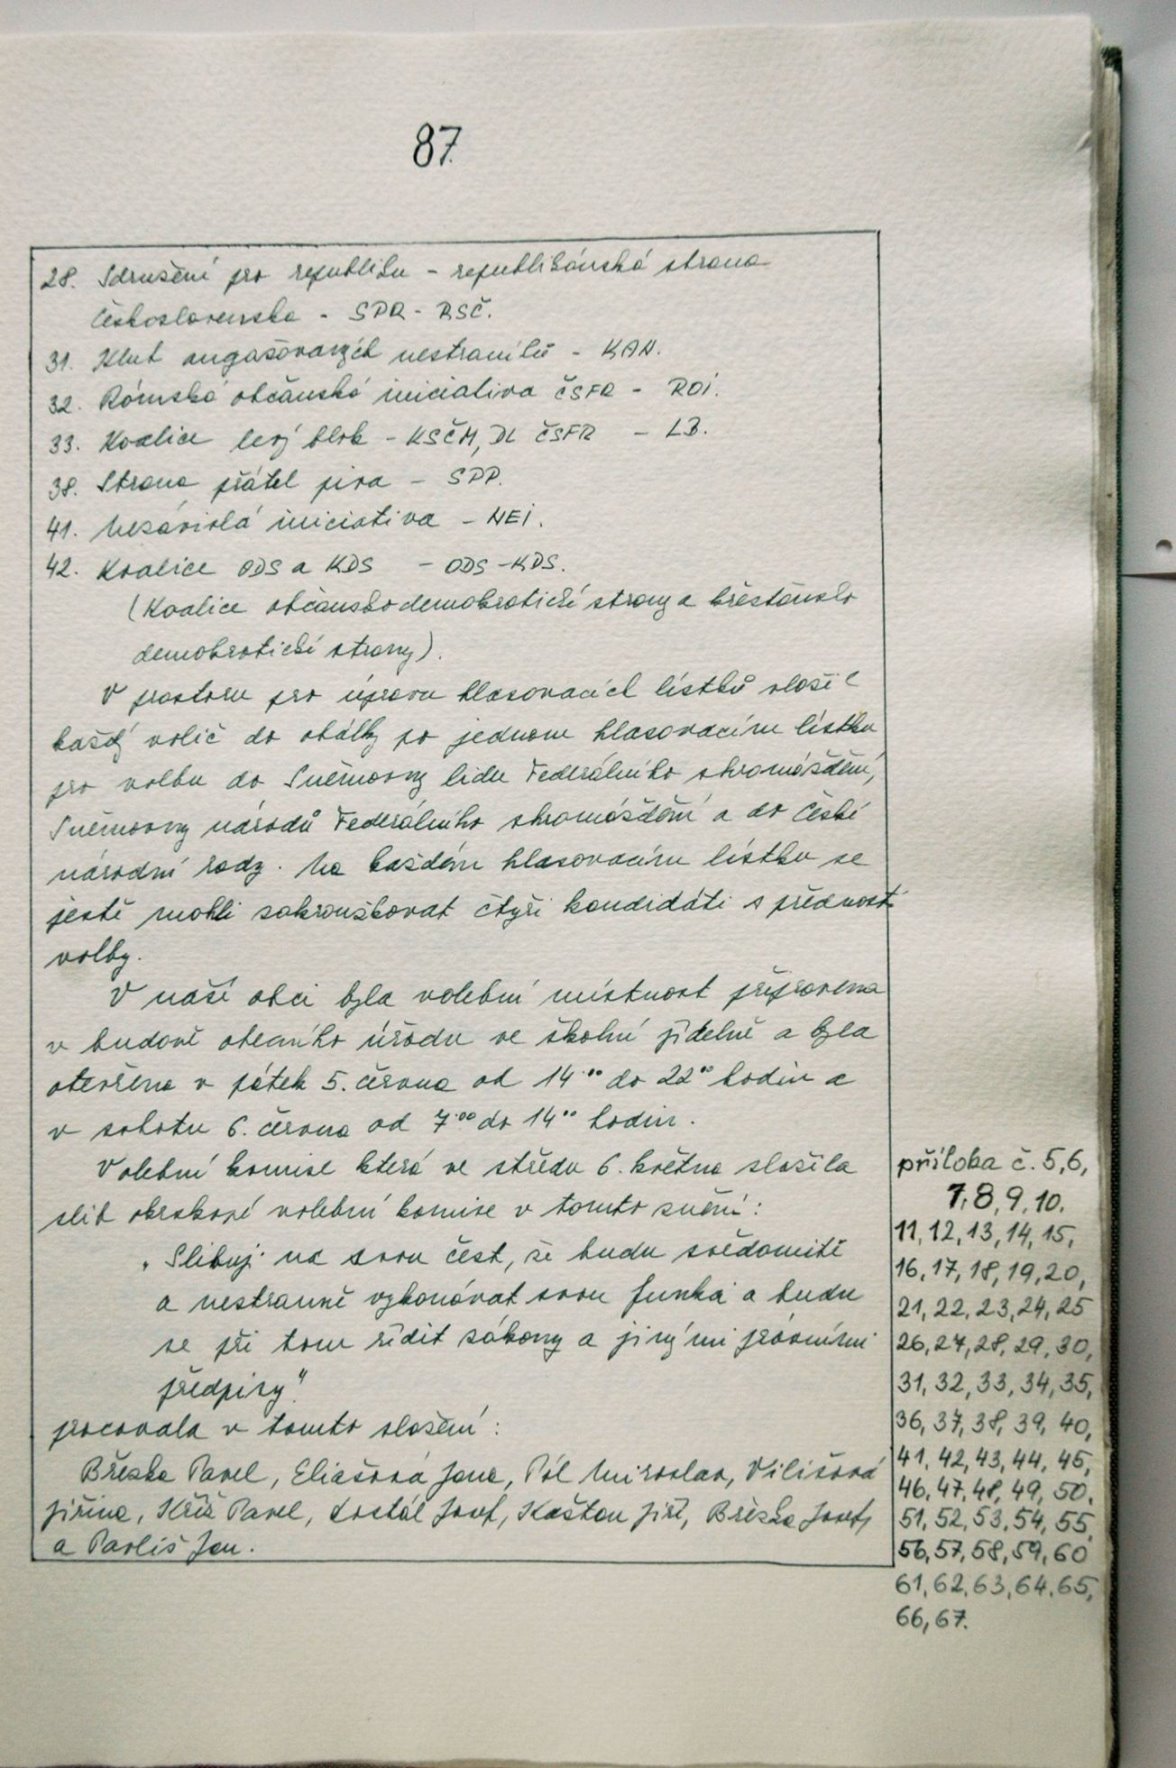 87.
28. Sdružení pro republiku - republikánská strana
Československa - SPR - RSČ.
31. Klub angažovaných nestraníků - KAN.
32. Rómská občanská iniciativa ČSFR - ROI.
33. Koalice levý blok - KSČM, DL ČSFR - LB.
38. Strana přátel piva - SPP.
41. Nezávislá iniciativa - NEI.
42. Koalice ODS a KDS - ODS-KDS.
(Koalice občanskodemokratické strany a křesťansko
demokratické strany).
V prostoru pro úpravu hlasovacích lístků vložil
každý volič do obálky po jednom hlasovacím lístku
pro volbu do Sněmovny lidu Federálního shromáždění,
Sněmovny národů Federálního shromáždění a do České
národní rady. Na každém hlasovacím lístku se
ještě mohli zakroužkovat čtyři kandidáti s předností
volby.
V naší obci byla volební místnost připravena
v budově obecního úřadu ve školní jídelně a byla
otevřena v pátek 5. června od 14°° do 22°° hodin a
v sobotu 6. června od 7°° do 14°° hodin.
Volební komise která ve středu 6. května složila
slib okrskové volební komise v tomto znění:
"Slibuji na svou čest, že budu svědomitě
a nestranně vykonávat svou funkci a budu
se při tom řídit zákony a jinými právními
předpisy"
pracovala v tomto složení:
Březka Pavel, Eliášová Jana, Pól Miroslav, Vilišová
Jiřina, Kříž Pavel, Dostál Josef, Kaštan Jiří, Březka Josef,
a Pavliš Jan.
příloha č. 5, 6,
7, 8, 9, 10.
11, 12, 13, 14, 15,
16, 17, 18, 19, 20,
21, 22, 23, 24, 25
26, 27, 28, 29, 30,
31, 32, 33, 34, 35,
36, 37, 38, 39, 40,
41, 42, 43, 44, 45,
46, 47, 48, 49, 50,
51, 52, 53, 54, 55,
56, 57, 58, 59, 60
61, 62, 63, 64, 65,
66, 67.